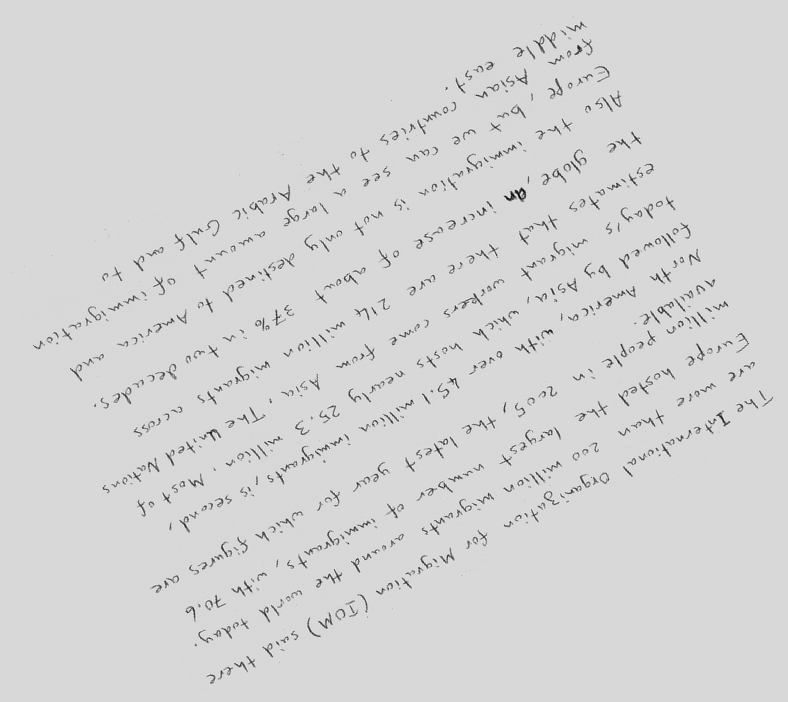 The International Organization for Migration (IOM) said there
are more than 200 million migrants around the world today.
Europe hosted the largest number of immigrants, with 70.6
million people in 2005, the latest year for which figures are
available.
North America, with over 45.1 million immigrants, is second,
followed by Asia, which hosts nearly 25.3 million. Most of
today's migrant workers come from Asia. The United Nations
estimates that there are 214 million migrants across
the globe, an increase of about 37% in two decades.
Also the immigration is not only destined to America and
Europe, but we can see a large amount of immigration
from Asian countries to the Arabic Gulf and to
middle east.